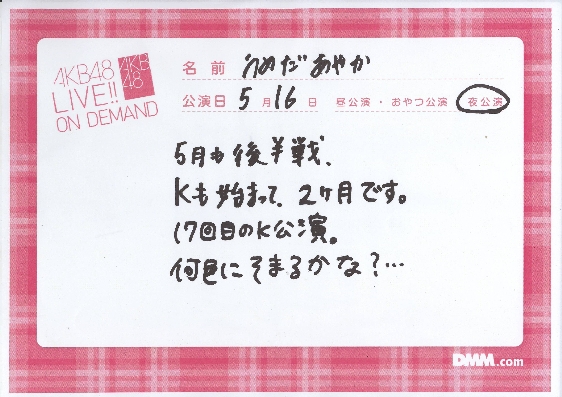 AKB48
LIVE!!
ON DEMAND
AKB
48
名前 うめだあやか
公演日 5月16日 昼公演・おやつ公演 夜公演
5月も後半戦、
Kも始まって、2ヶ月です。
17回目のK公演。
何色にそまるかな?…
DMM.com